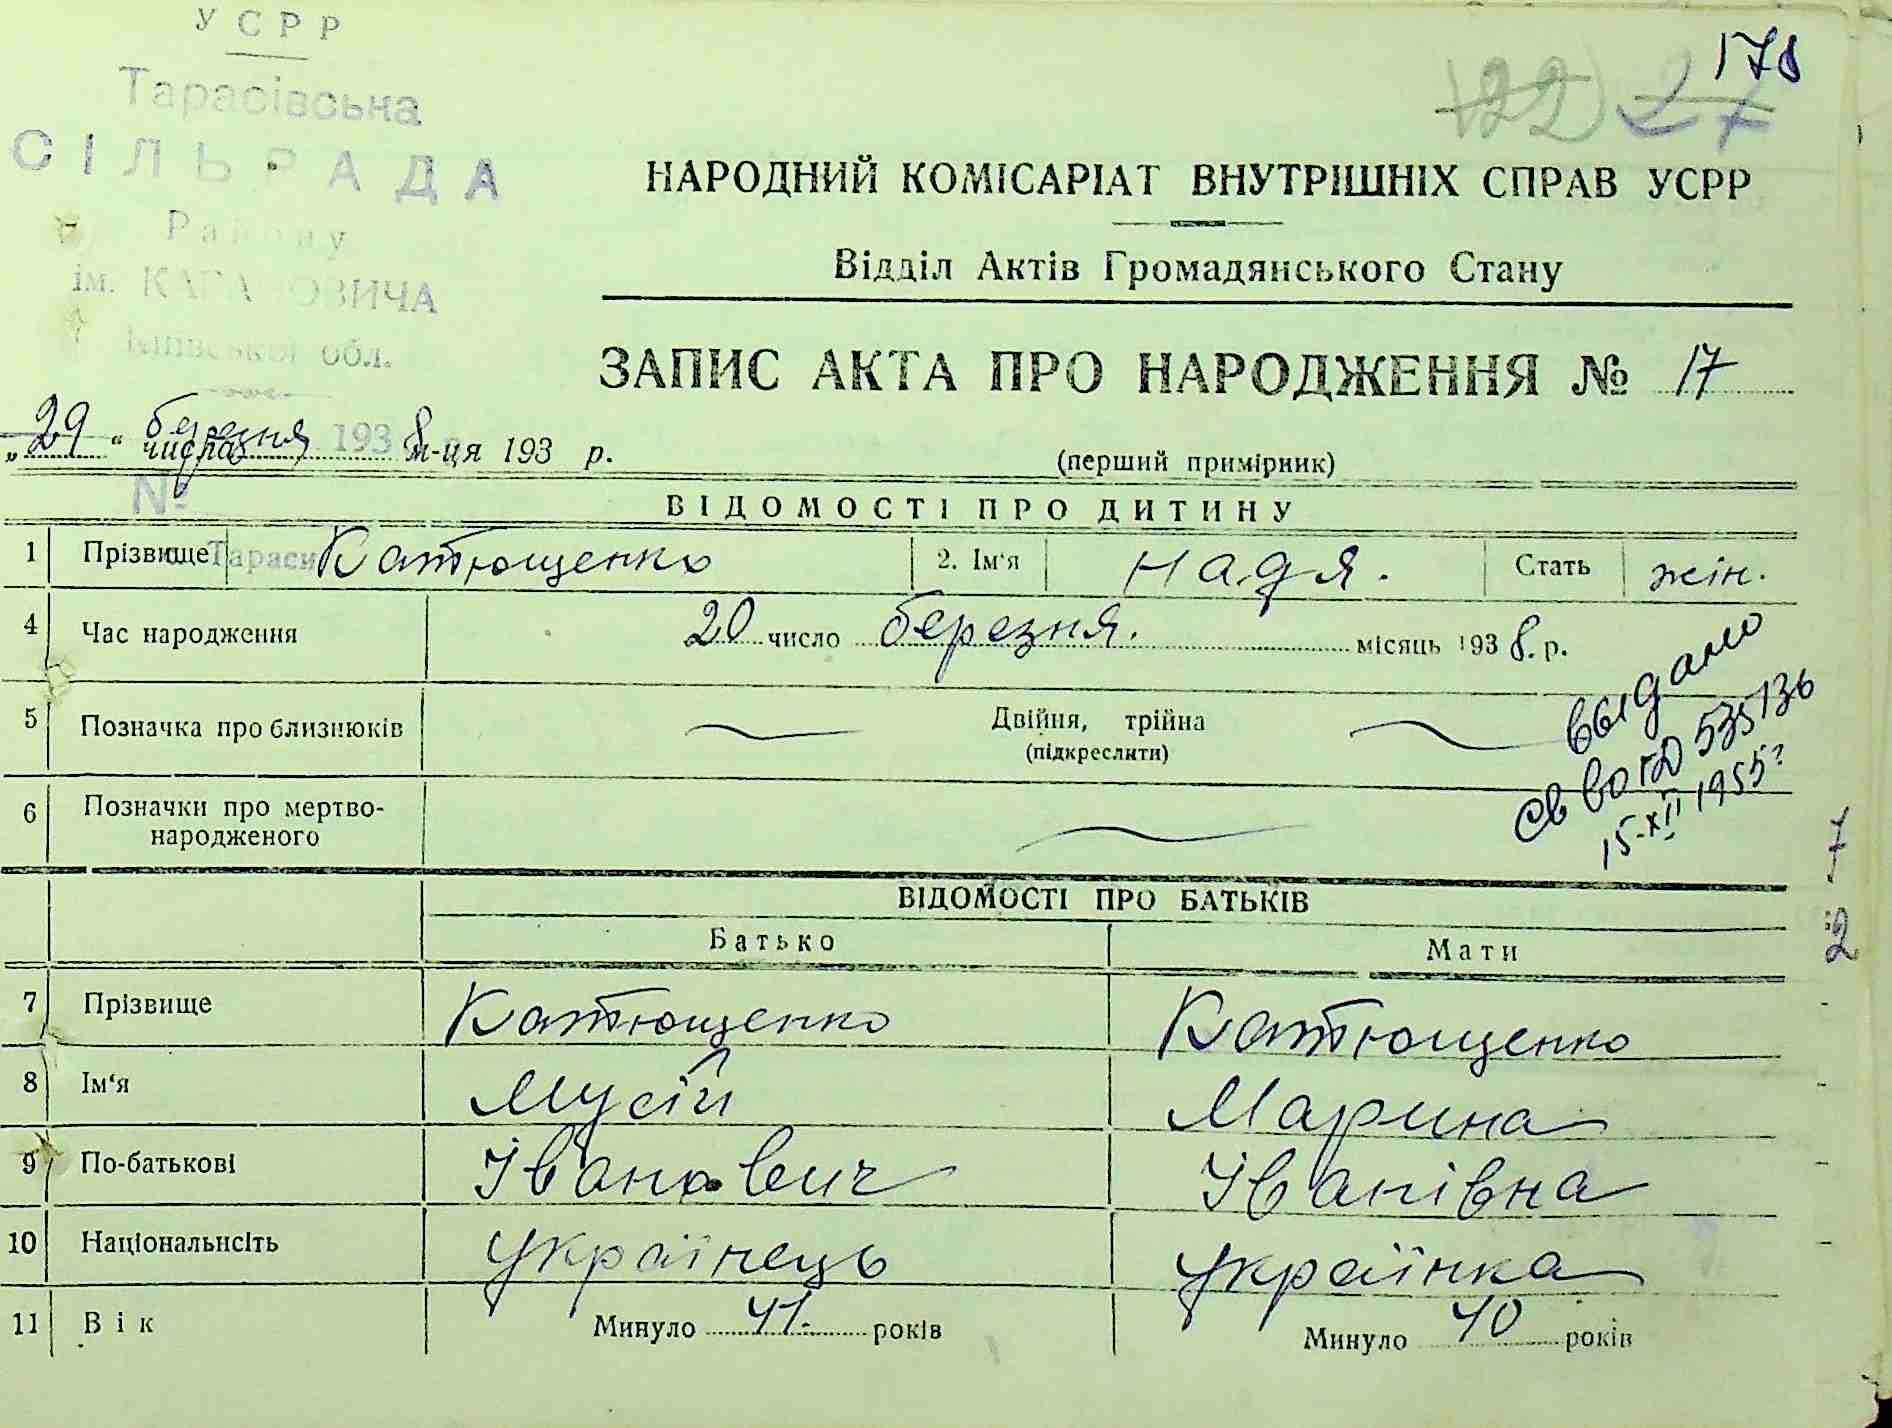 УСРР
Тарасівська
СІЛЬРАДА
Району
ім. КАГАНОВИЧА
Київської обл.
178
122 27
НАРОДНИЙ КОМІСАРІАТ ВНУТРІШНІХ СПРАВ УСРР
Відділ Актів Громадянського Стану
ЗАПИС АКТА ПРО НАРОДЖЕННЯ № 17
„29" числа березня 1938 м-ця 193 р.
(перший примірник)
№
ВІДОМОСТІ ПРО ДИТИНУ
1 Прізвище Катющенко 2. Ім'я Надя. Стать жін.
4 Час народження 20 число березня. місяць 1938. р.
5 Позначка про близнюків Двійня, трійна
(підкреслити)
выдано
св 535136
15-XII 1955г
6 Позначки про мертво-
народженого
ВІДОМОСТІ ПРО БАТЬКІВ
Батько Мати
7 Прізвище Катющенко Катющенко
8 Ім'я Мусій Марина
9 По-батькові Іванович Іванівна
10 Національнсіть українець українка
11 Вік Минуло 41. років Минуло 40 років
7
2